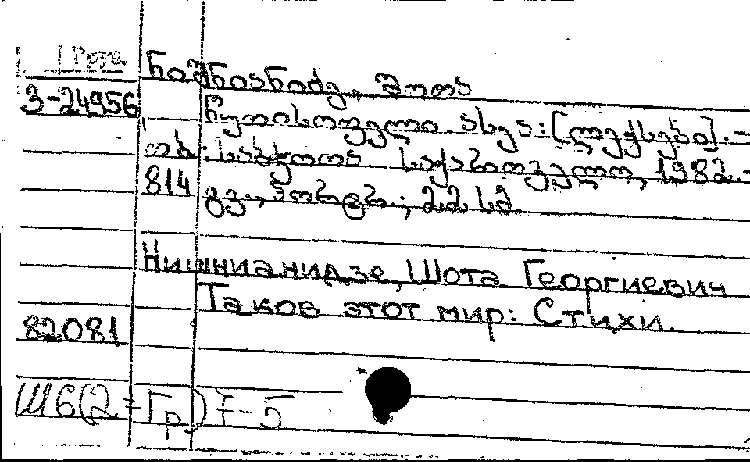 ნიშნიანიძე, შოთა
3-24956
წუთისოფელი ასეა: [ლექსები]. -
თბ.: საბჭოთა საქართველო, 1982. -
814 გვ., პორტრ.; 22 სმ
Нишнианидзе, Шота Георгиевич
Таков этот мир: Стихи.
82081
Ш6(2=Гр)7-5